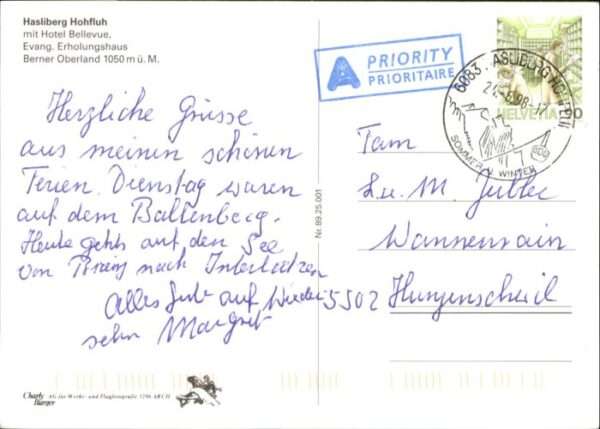 Hasliberg Hohfluh
mit Hotel Bellevue,
Evang. Erholungshaus
Berner Oberland 1050 m ü. M.
A PRIORITY
PRIORITAIRE
6083 HASLIBERG HOHFLUH
98-17
SOMMER U. WINTER
HELVETIA
Herzliche Grüsse
aus meinen schönen
Ferien. Dienstag waren
auf dem Ballenberg.
Heute gehts auf den See
von Brienz nach Interlaken
Alles Gute auf Wieder
sehn Margrit
Fam.
L. u. M.
Wannenrain
5502 Hunzenschwil
Nr. 89.25.001
Charly Bürger
AG für Werbe- und Flugfotografie 3296 ARCH